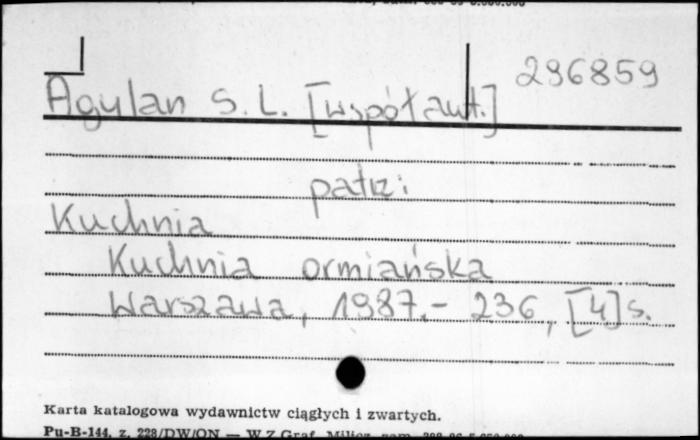 296859
Agylan S. L. [współaut.]
patrz:
Kuchnia
Kuchnia ormiańska
Warszawa, 1987.- 236, [4] s.
Karta katalogowa wydawnictw ciągłych i zwartych.
Pu-B-144, z. 228/DW/ON — W.Z.Graf.